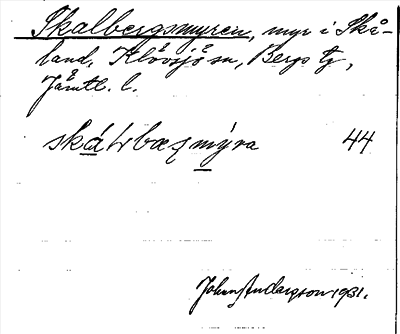 Skalbergsmyren, myr i Skå-
land, Klövsjö sn, Bergs tg,
Jämtl. l.
skálrbæʒmýra 44
Johan Anderson 1931.